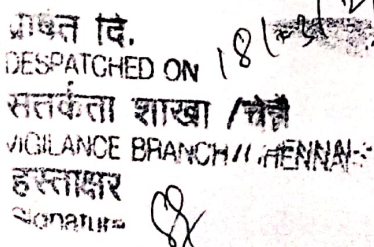 प्रेषित दि.
DESPATCHED ON 18/
सतर्कता शाखा / चेन्नै
VIGILANCE BRANCH // CHENNAI
हस्ताक्षर
Signature